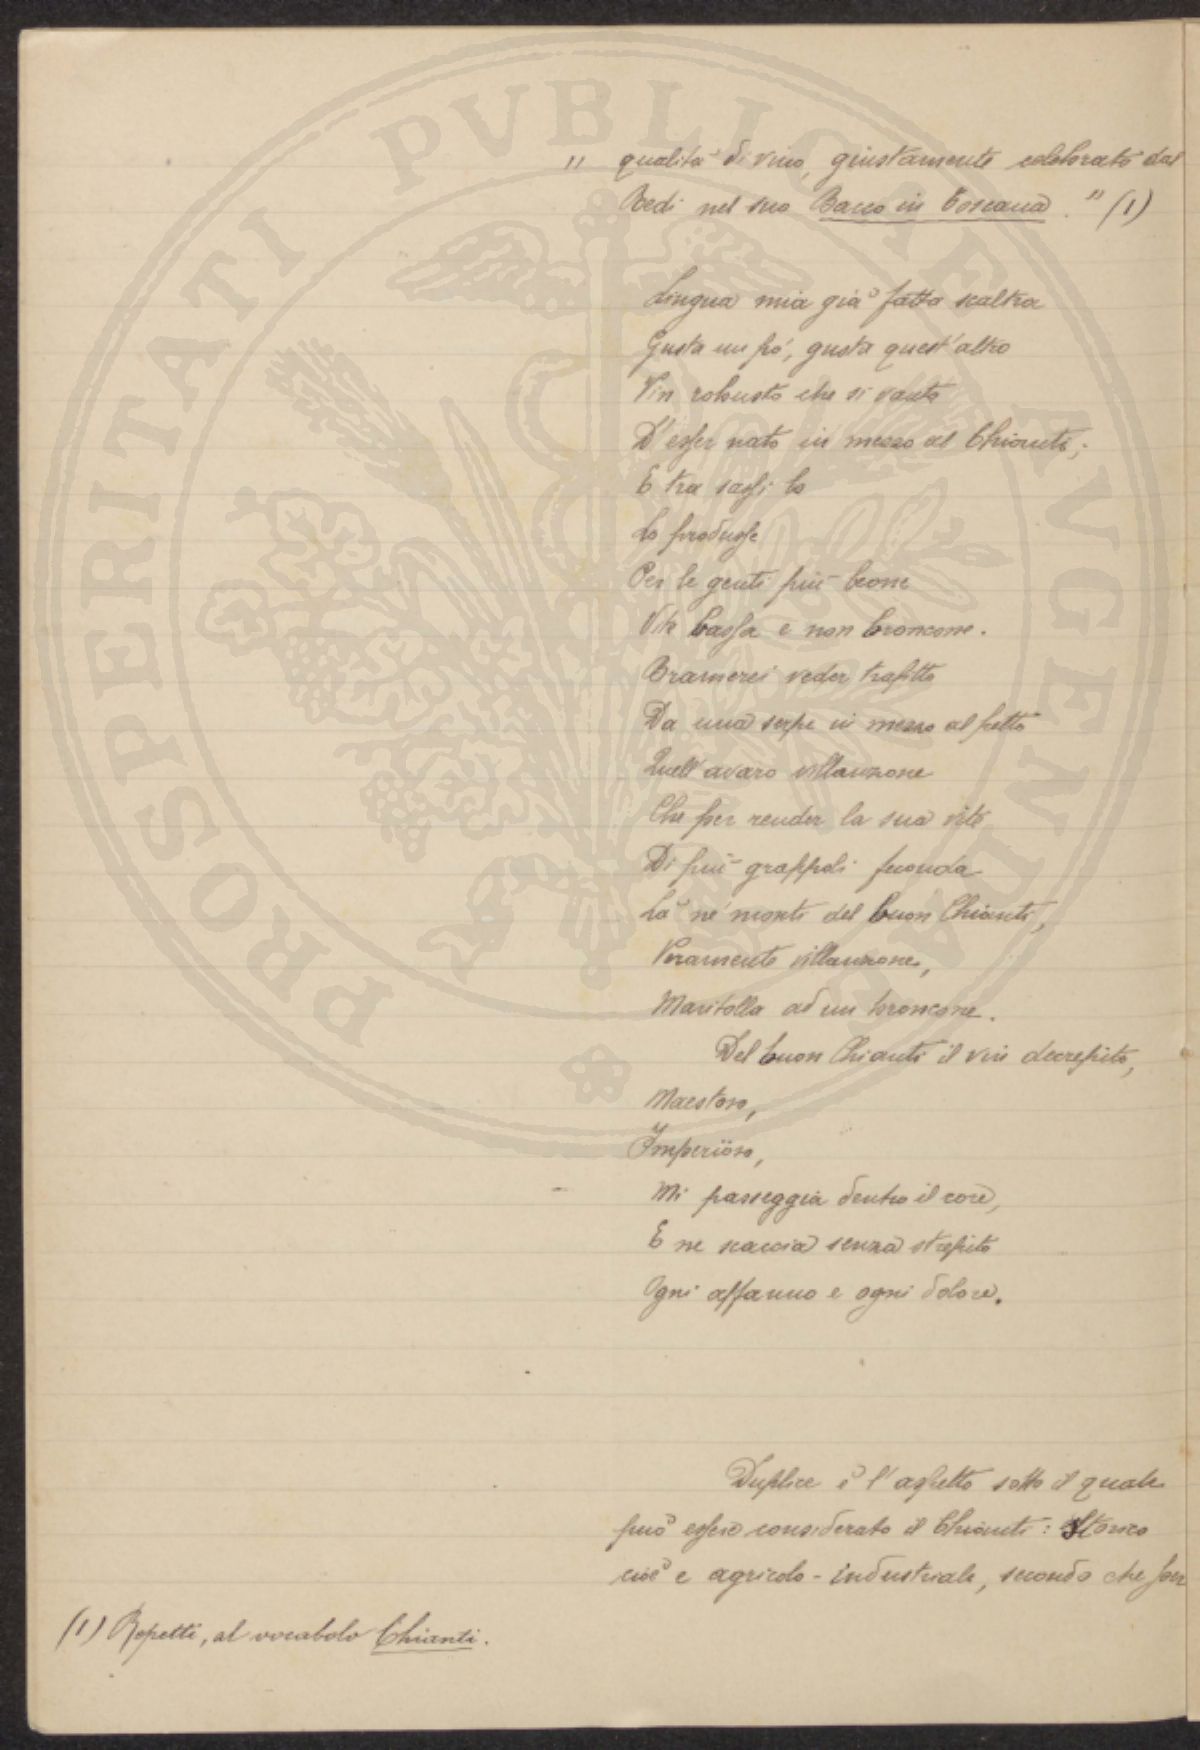 " qualità di vino, giustamente celebrato dal
Redi nel suo Bacco in Toscana." (1)
Lingua mia già fatta scaltra
Gusta un pó, gusta quest'altro
Vin robusto che si vanta
D'esser nato in mezzo al Chianti;
E tra sassi lo
Lo produsse
Per le genti più beone
Vite bassa e non broncone.
Bramerei veder trafitto
Da una serpe in mezzo al petto
Quell'avaro villanzone
Che per render la sua vite
Di più grappoli feconda
Là ne' monti del buon Chianti,
Veramente villanzone,
Maritolla ad un broncone.
Del buon Chianti il vin decrepito,
Maestoso,
Imperïoso,
Mi passeggia dentro il core,
E ne scaccia senza strepito
Ogni affanno e ogni dolore.
Duplice è l'aspetto sotto il quale
può essere considerato il Chianti: Storico
cioè e agricolo-industriale, secondo che per
(1) Repetti, al vocabolo Chianti.
PROSPERITATI PVBLICAE AVGENDAE